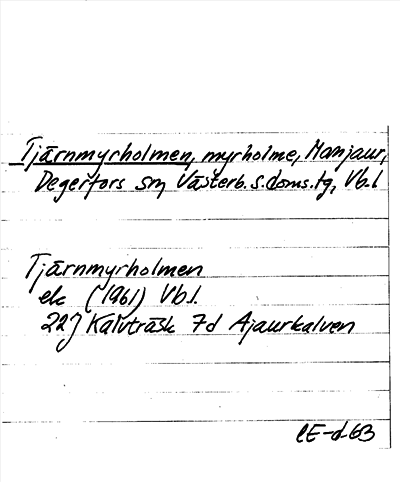 Tjärnmyrholmen, myrholme, Manjaur,
Degerfors sn, Västerb. s. doms. tg, Vb.l
Tjärnmyrholmen
ek (1961) Vb.l.
22J Kalvträsk 7d Ajaurkalven
CE-d-63